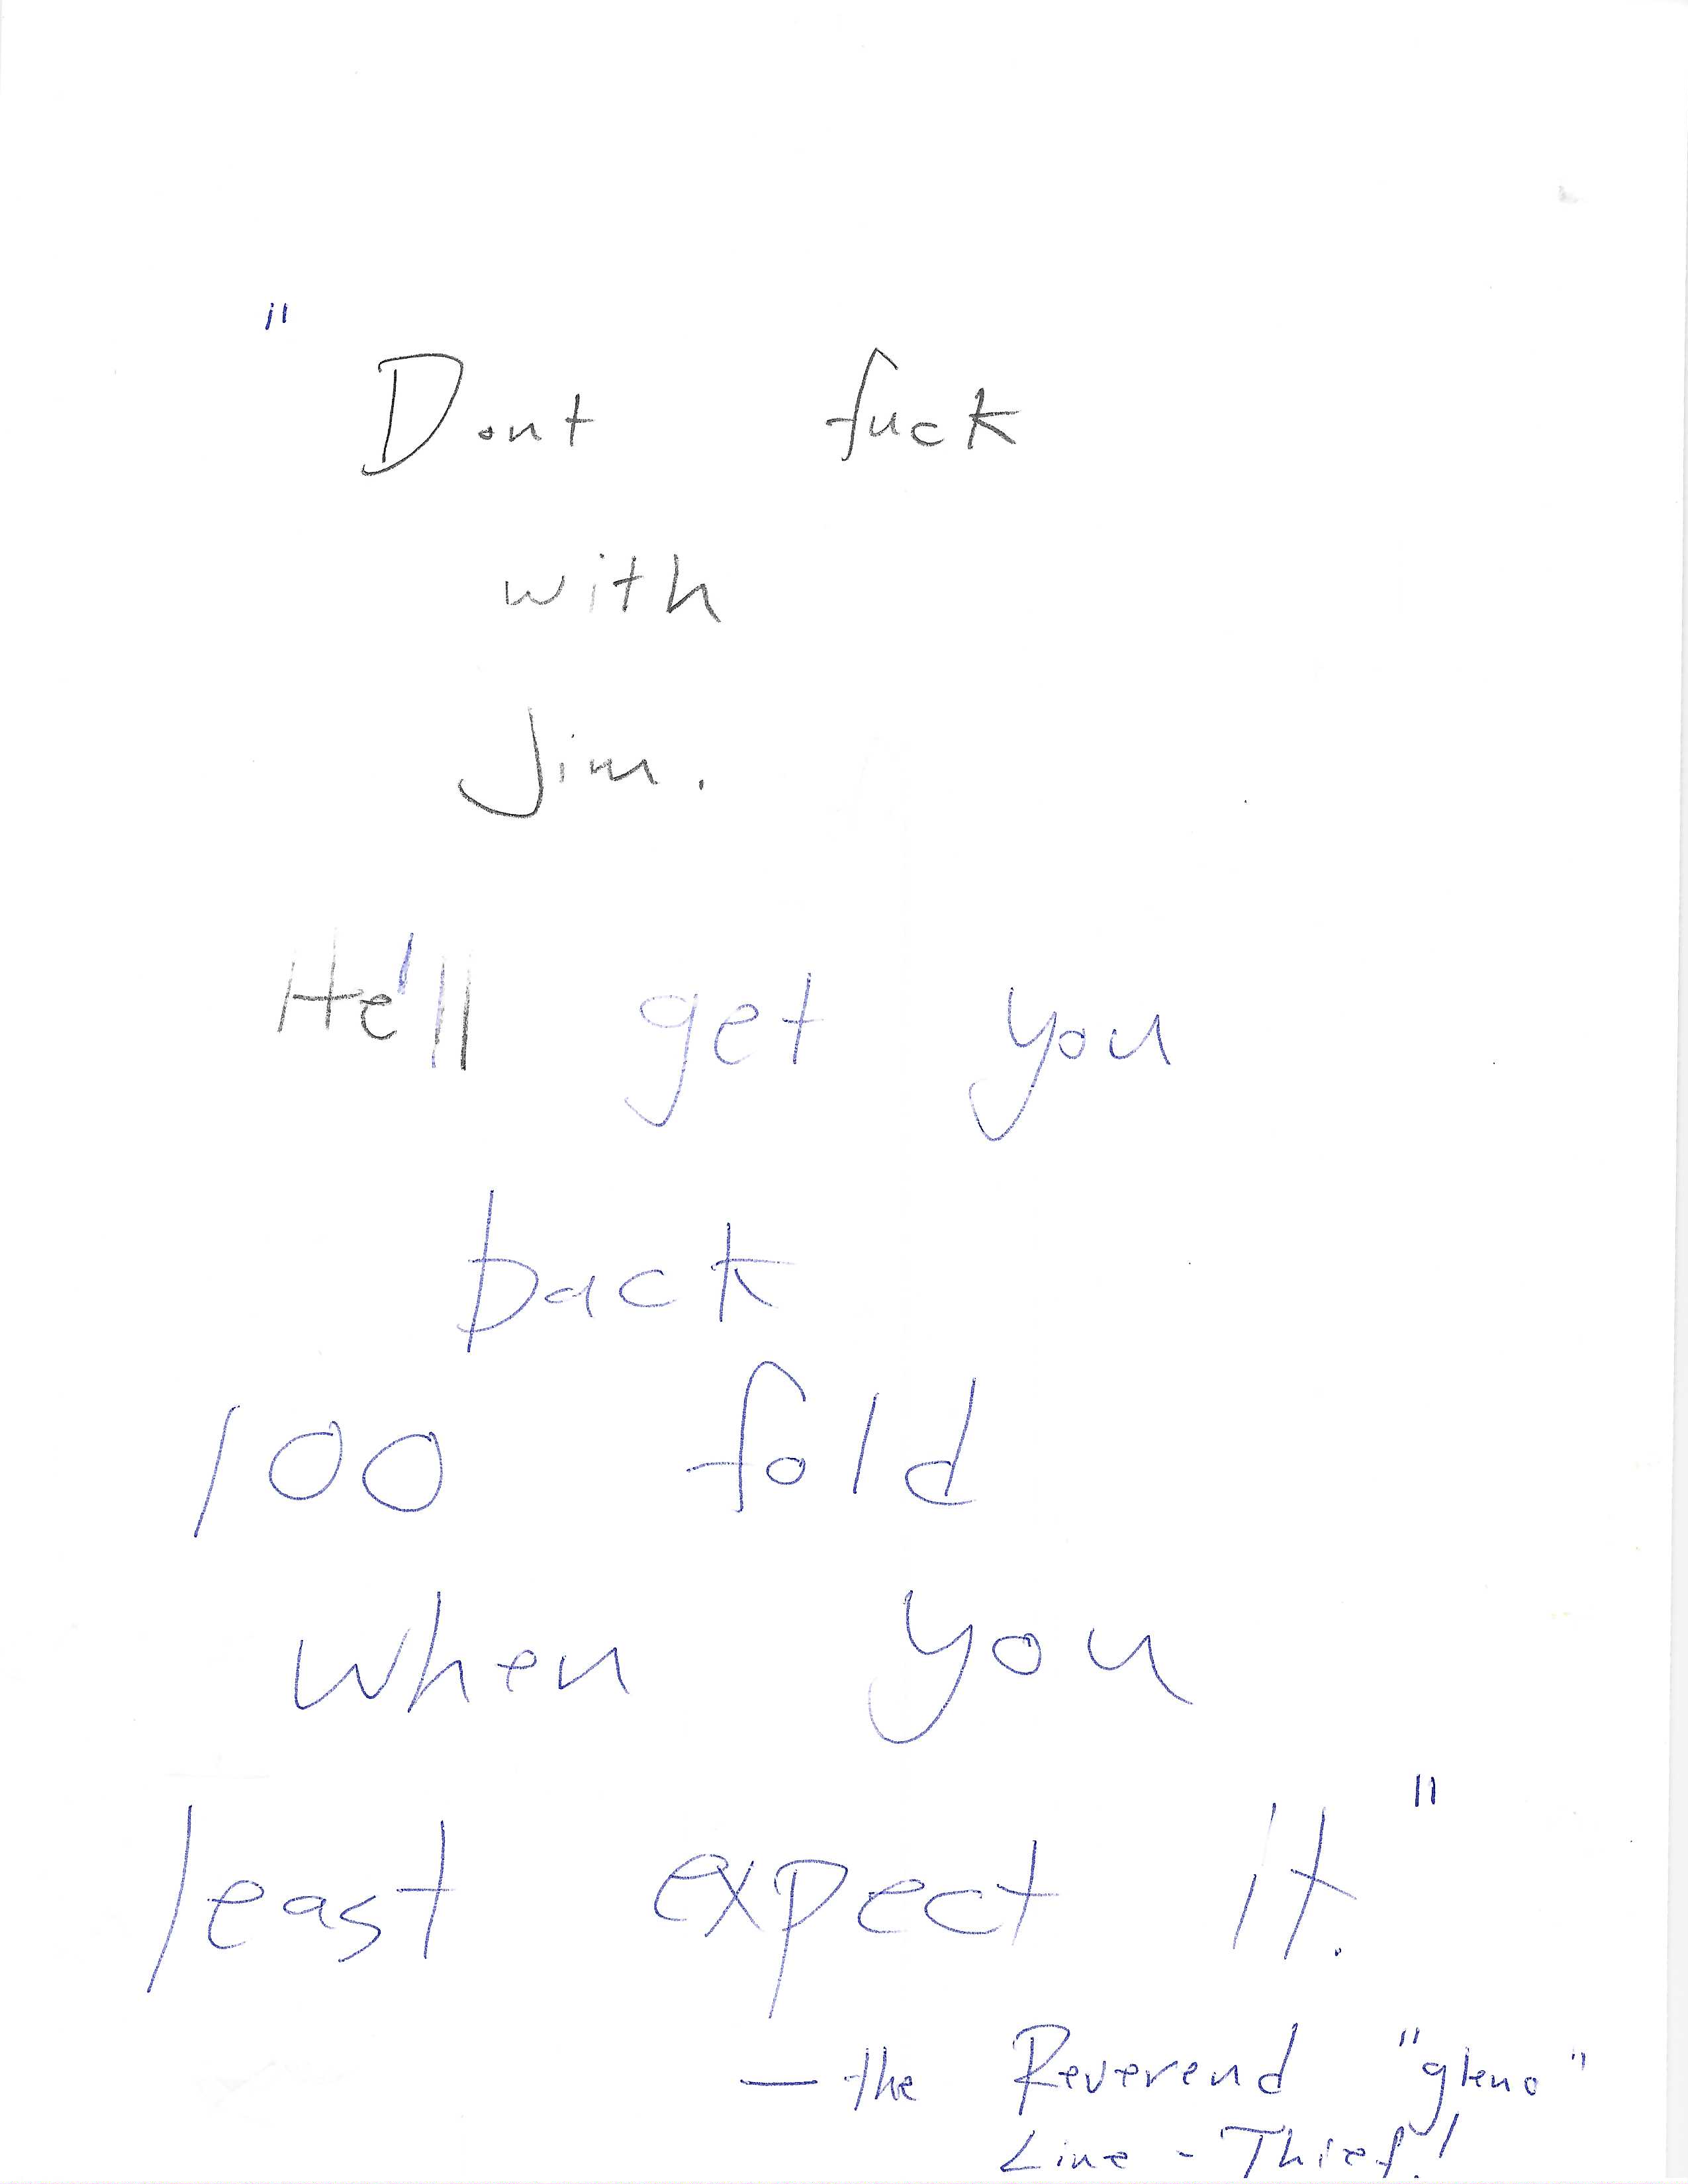 "
Dont fuck
with
Jim.
He'll get you
back
100 fold
when you
least expect it."
— the Reverend "gleno"
Line - Thief!